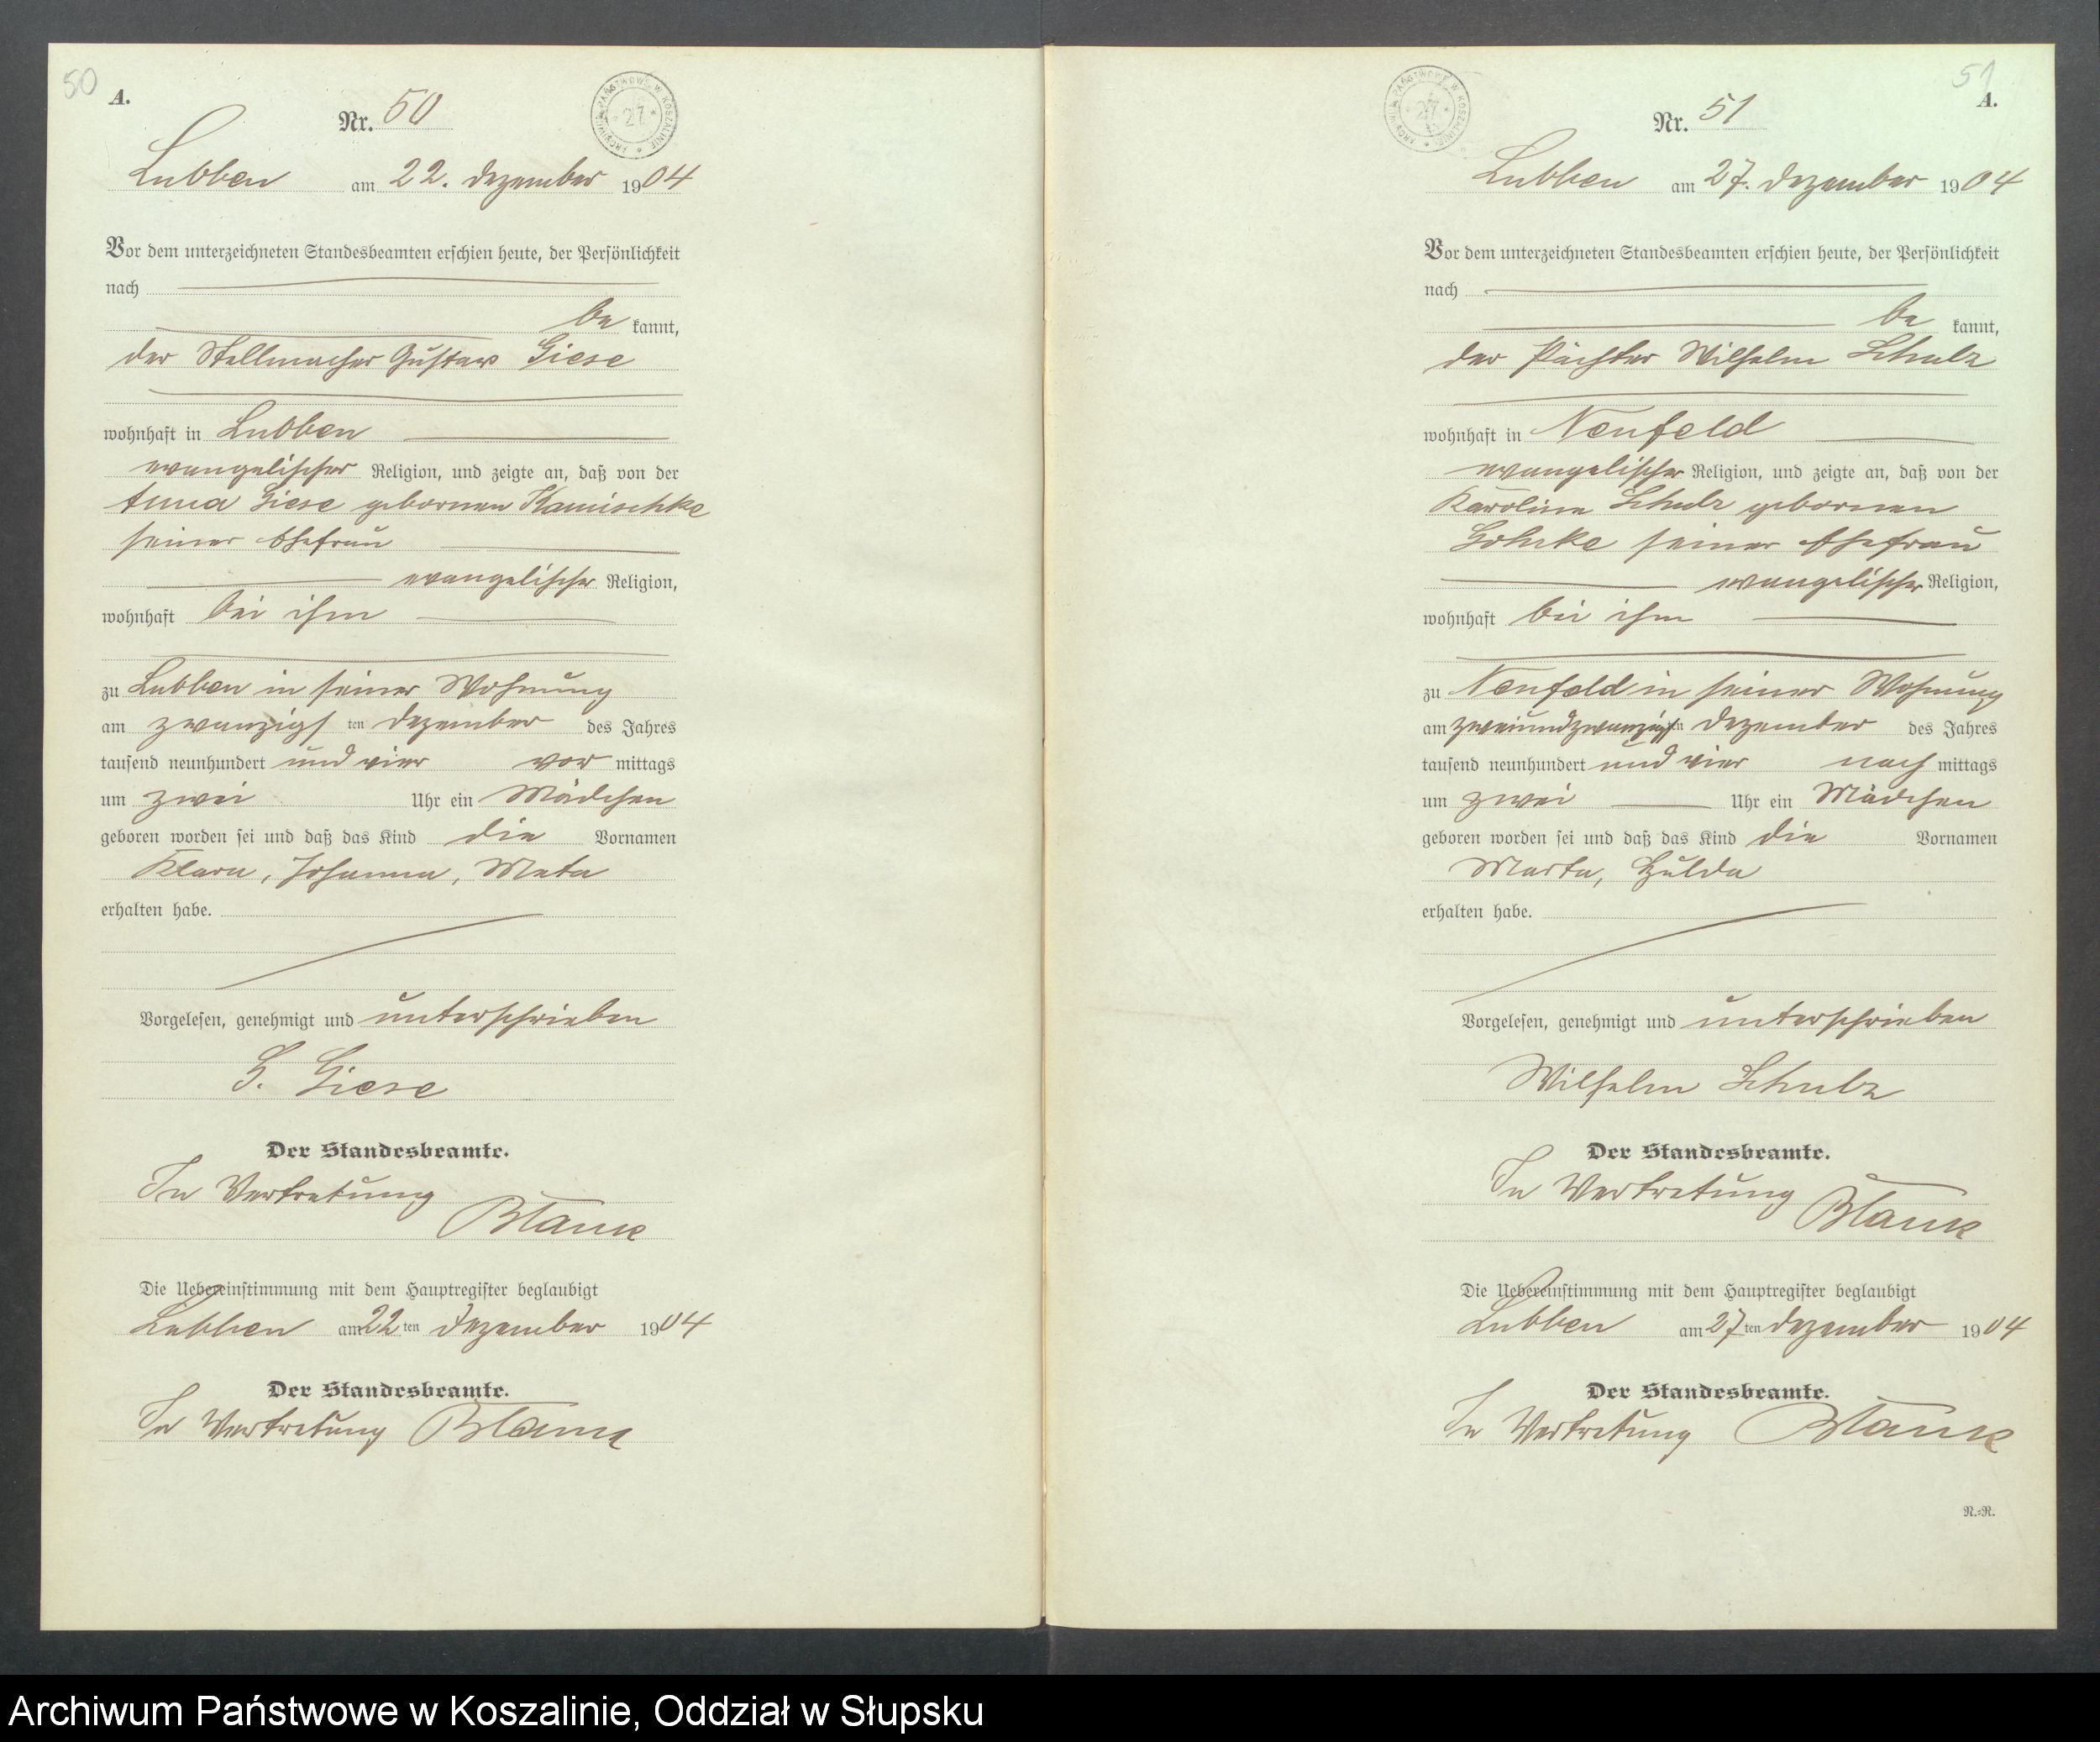 50
A.
Nr. 50
ARCHIWUM PAŃSTWOWE W KOSZALINIE * 27 *
Lubben am 22. Dezember 1904
Vor dem unterzeichneten Standesbeamten erschien heute, der Persönlichkeit
nach
be kannt,
der Stellmacher Gustav Giese
wohnhaft in Lubben
evangelischer Religion, und zeigte an, daß von der
Anna Giese gebornen Kamischke
seiner Ehefrau
evangelischer Religion,
wohnhaft bei ihm
zu Lubben in seiner Wohnung
am zwanzigs ten Dezember des Jahres
tausend neunhundert und vier vor mittags
um zwei Uhr ein Mädchen
geboren worden sei und daß das Kind die Vornamen
Klara, Johanna, Meta
erhalten habe.
Vorgelesen, genehmigt und unterschrieben
G. Giese
Der Standesbeamte.
In Vertretung
Blank
Die Uebereinstimmung mit dem Hauptregister beglaubigt
Lubben am 22 ten Dezember 1904
Der Standesbeamte.
In Vertretung Blank
51
A.
Nr. 51
ARCHIWUM PAŃSTWOWE W KOSZALINIE * 27 *
Lubben am 27. Dezember 1904
Vor dem unterzeichneten Standesbeamten erschien heute, der Persönlichkeit
nach
be kannt,
der Pächter Wilhelm Schulz
wohnhaft in Neufeld
evangelischer Religion, und zeigte an, daß von der
Karoline Schulz gebornen
seiner Ehefrau
evangelischer Religion,
wohnhaft bei ihm
zu Neufeld in seiner Wohnung
am zweiundzwanzigs ten Dezember des Jahres
tausend neunhundert und vier nach mittags
um zwei Uhr ein Mädchen
geboren worden sei und daß das Kind die Vornamen
Marta, Hulda
erhalten habe.
Vorgelesen, genehmigt und unterschrieben
Wilhelm Schulz
Der Standesbeamte.
In Vertretung
Blank
Die Uebereinstimmung mit dem Hauptregister beglaubigt
Lubben am 27 ten Dezember 1904
Der Standesbeamte.
In Vertretung Blank
N.=N.
Archiwum Państwowe w Koszalinie, Oddział w Słupsku